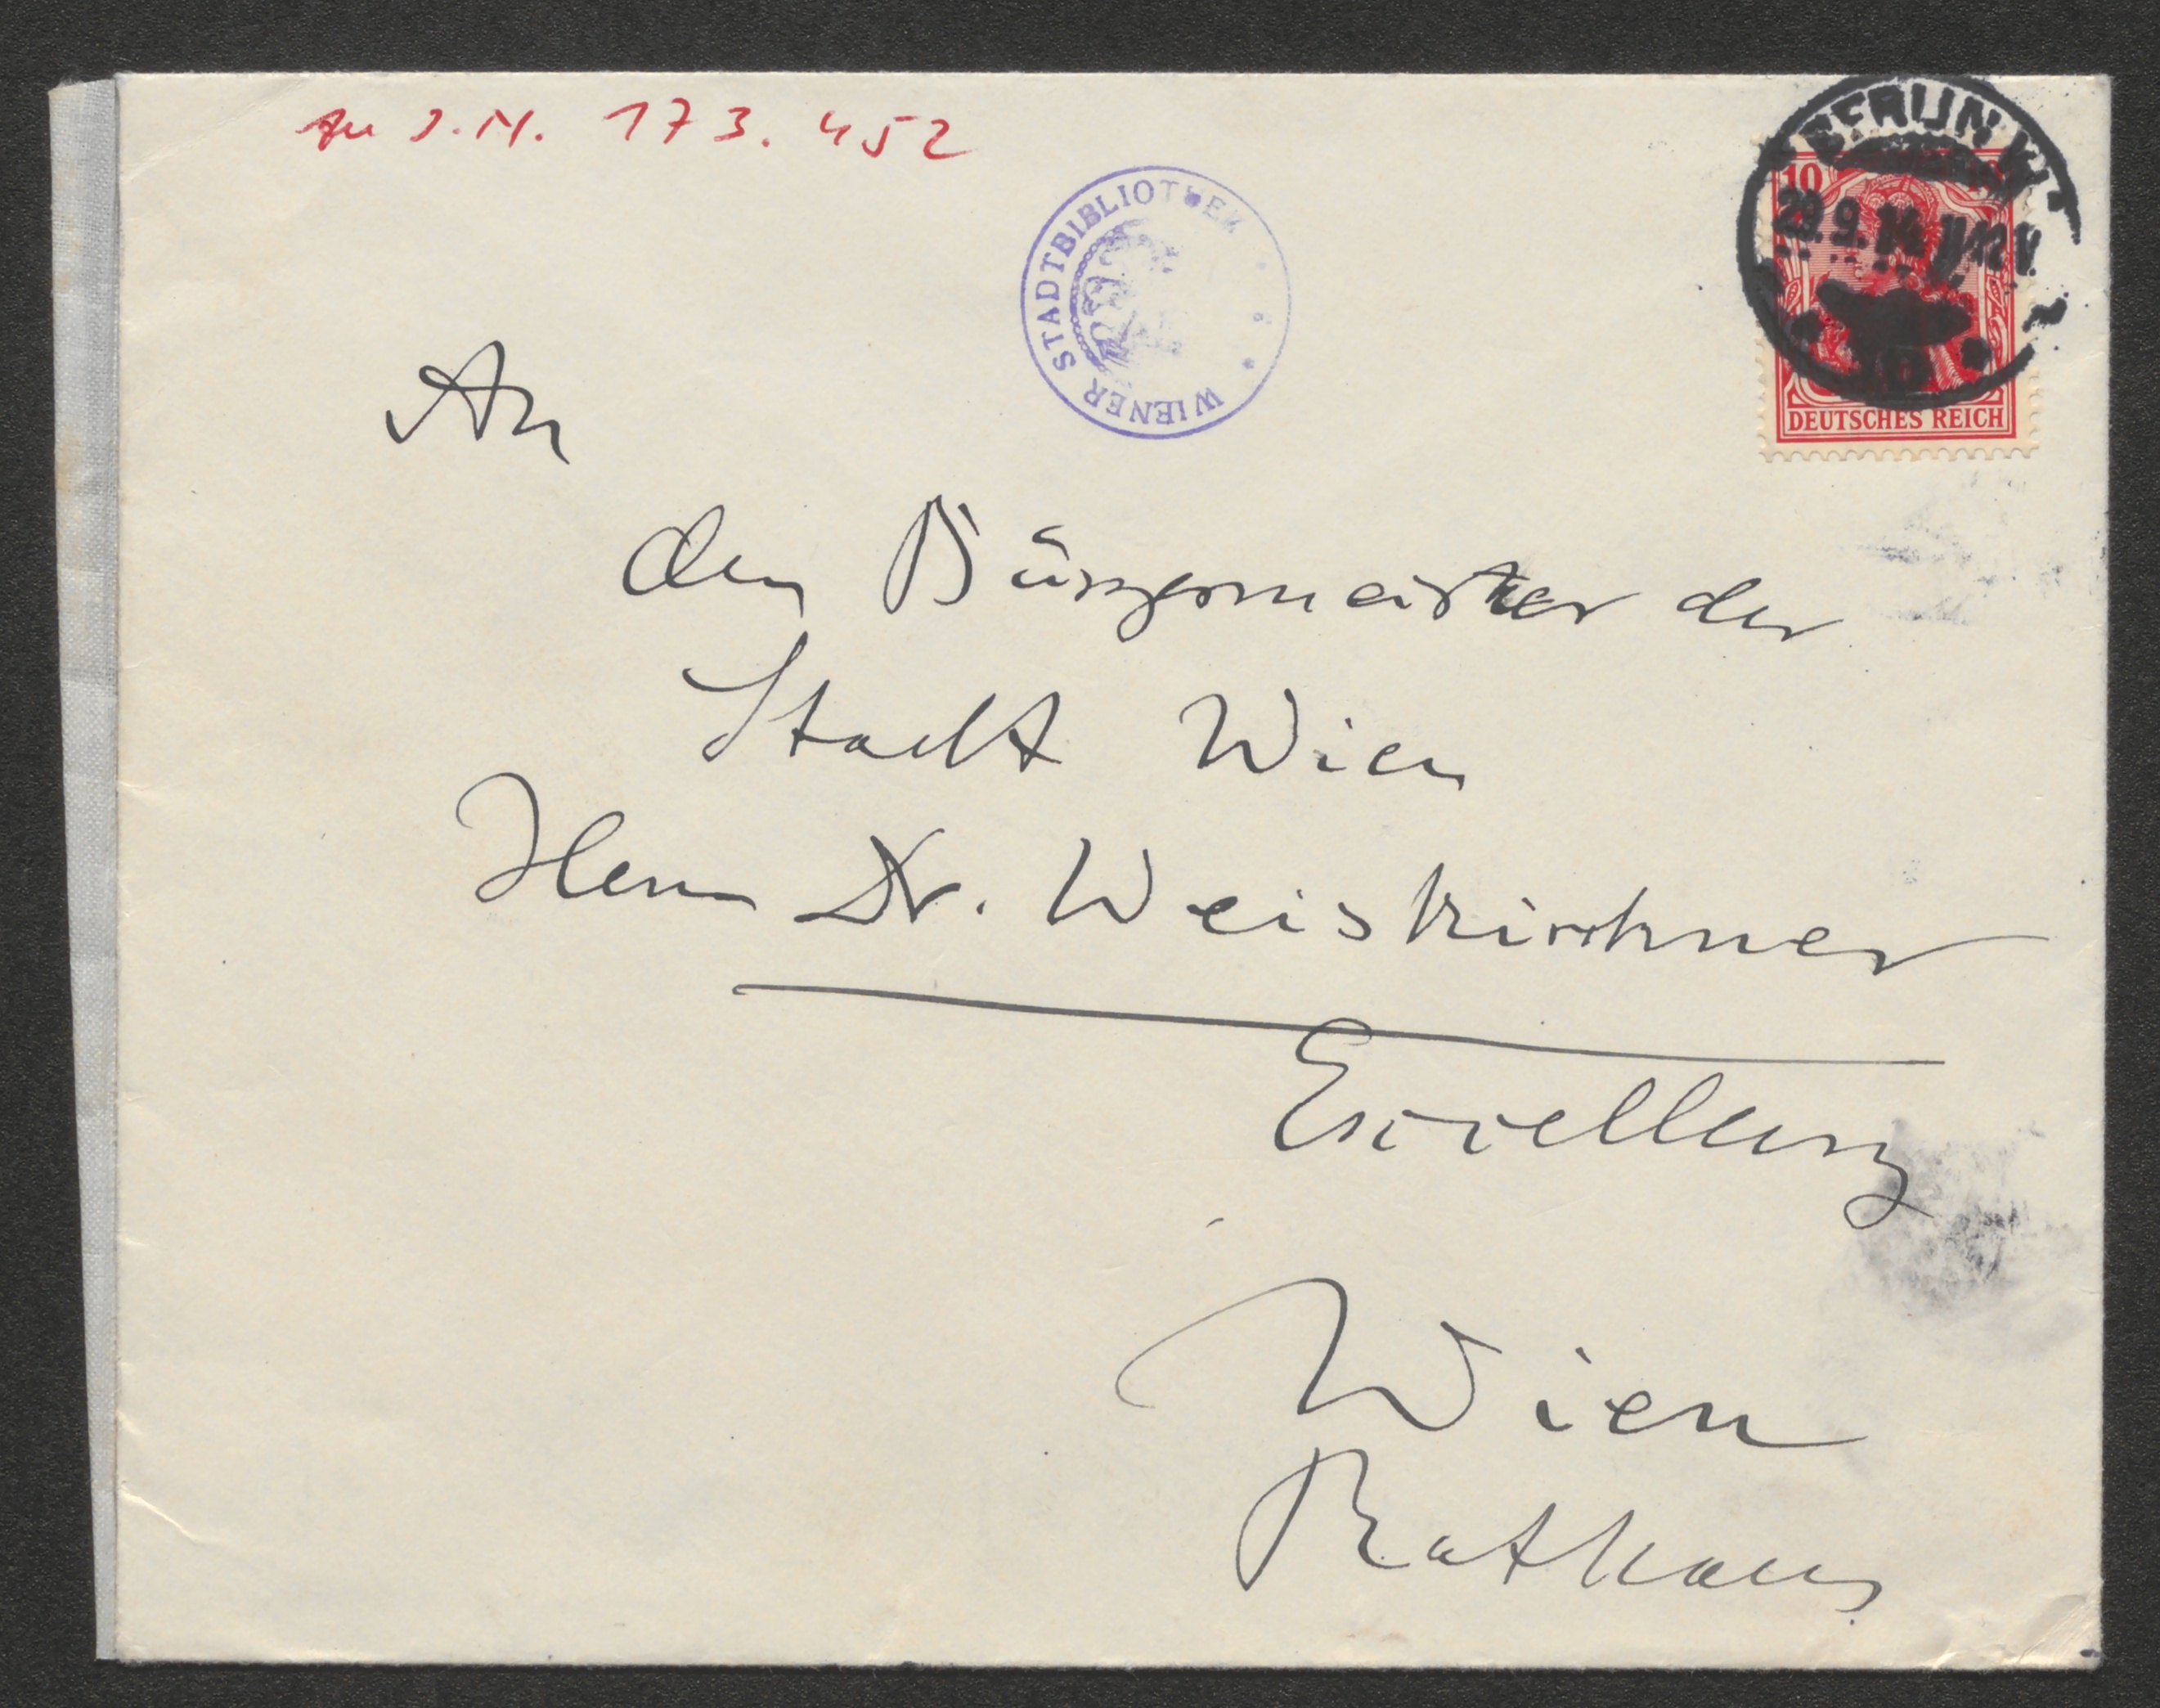 zu I.N. 173.452
WIENER STADTBIBLIOTHEK
BERLIN W
10
29.9.14 11-12 V.
DEUTSCHES REICH
An
den Bürgermeister der
Stadt Wien
Herrn Dr. Weiskirchner
Excellenz
Wien
Rathaus